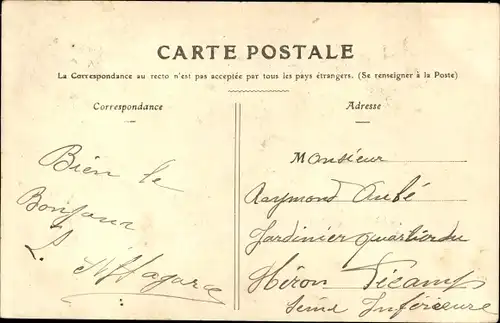 CARTE POSTALE
La Correspondance au recto n'est pas acceptée par tous les pays étrangers. (Se renseigner à la Poste)
Correspondance
Adresse
Bien le
Bonjour
Monsieur
Raymond Aubé
Jardinier quartier du
Héron Fécamp
Seine Inférieure